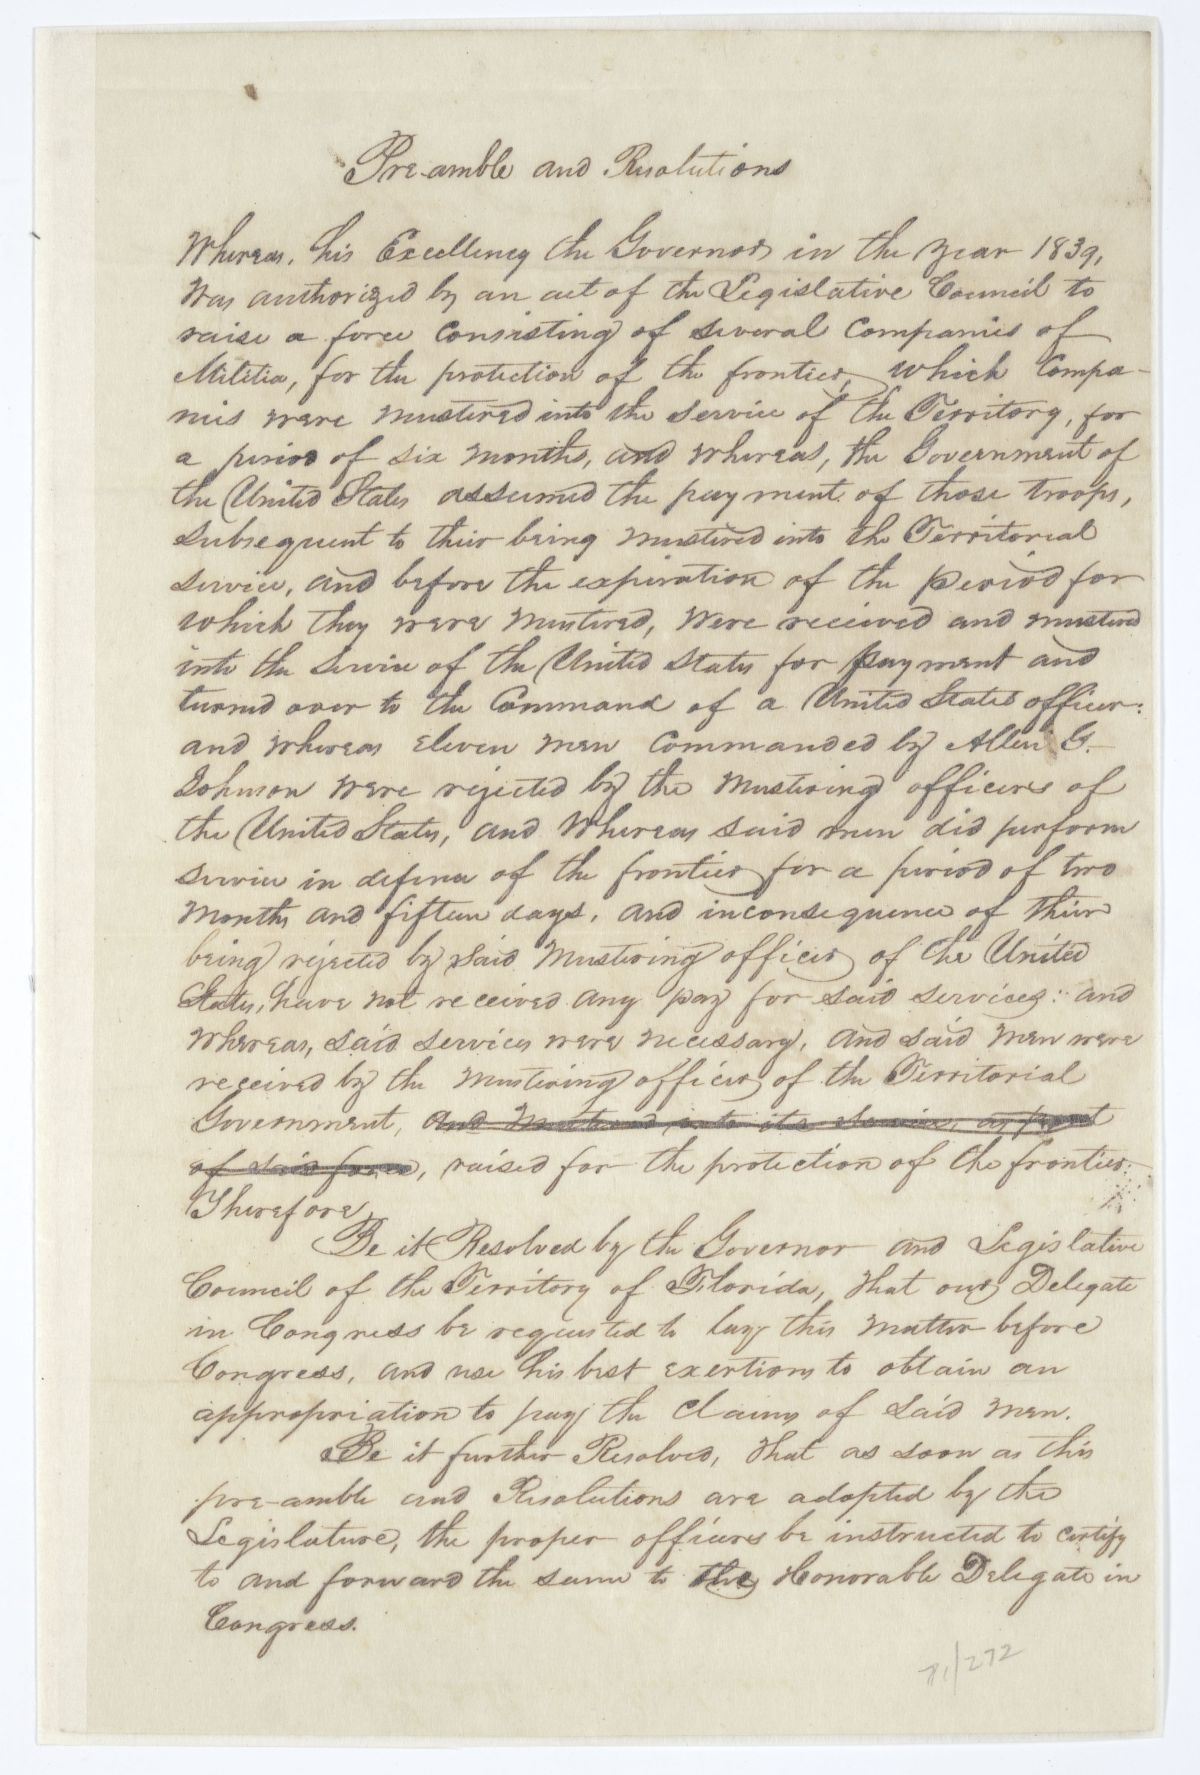 Pre-amble and Resolutions
Whereas, his Excellency the Governor in the year 1839,
was authorized by an act of the Legislative Council to
raise a force consisting of several companies of
Militia, for the protection of the frontier, which Compa-
nies were mustered into the service of the Territory, for
a period of six months, and whereas, the Government of
the United States assumed the payment of those troops,
subsequent to their being mustered into the Territorial
service, and before the expiration of the period for
which they were mustered, were received and mustered
into the service of the United States for payment and
turned over to the Command of a United States officer:
and whereas eleven men commanded by Allen G.
Johnson were rejected by the mustering officers of
the United States, and Whereas said men did perform
service in defence of the frontier for a period of two
months and fifteen days, and inconsequence of their
being rejected by said mustering officer of the United
States, have not received any pay for said services: and
whereas, said services were necessary, and said men were
received by the mustering officer of the Territorial
Government, and mustered into its service, as part
of said force, raised for the protection of the frontier.
Therefore
Be it Resolved by the Governor and Legislative
Council of the Territory of Florida, that our Delegate
in Congress be requested to lay this matter before
Congress, and use his best exertions to obtain an
appropriation to pay the claims of said men.
Be it further Resolved, that as soon as this
pre-amble and Resolutions are adopted by the
Legislature, the proper officers be instructed to certify
to and forward the same to the Honorable Delegate in
Congress.
/272